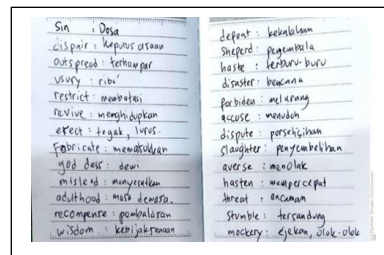 Sin : Dosa
dispair : keputus asaan
outspread : terhampar
usury : riba'
restrict : membatasi
revive : menghidupkan
erect : tegak, lurus.
Fabricate : memalsukan
god dess : dewi
mislead : menyesatkan
adulthood : masa dewasa.
recompense : pembalasan
wisdom : kebijaksanaan
depont : kekalahan
sheperd : pengembala
haste : terburu-buru
disaster : bencana
forbiden : melarang
accuse : menuduh
dispute : perselisihan
slaughter : penyembelihan
averse : menolak
hasten : mempercepat
threat : ancaman
stumble : tersandung
mockery : ejekan, olok-olok